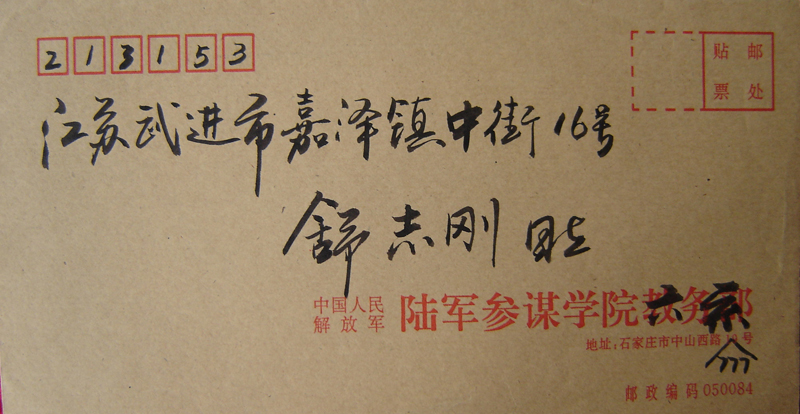 213153
贴邮
票处
江苏武进市嘉泽镇中街16号
舒志刚
中国人民
解放军
陆军参谋学院教务部
地址:石家庄市中山西路 号
邮政编码050084